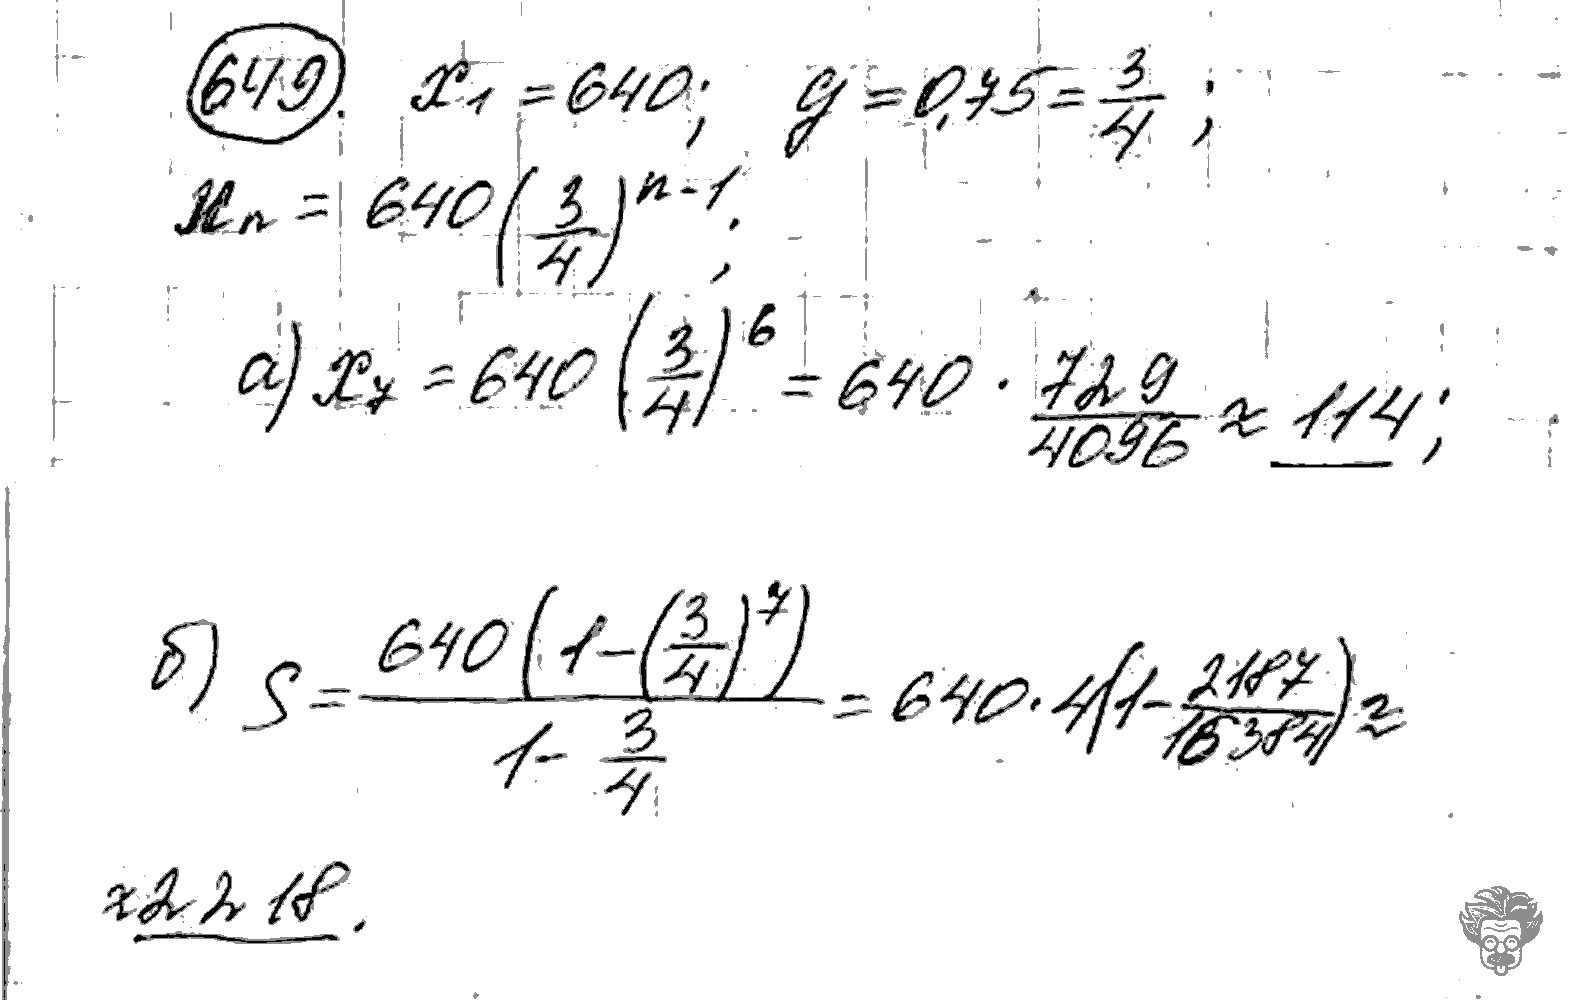 649. x₁ = 640; g = 0,75 = 3/4;
xₙ = 640(3/4)ⁿ⁻¹;
а) x₇ = 640(3/4)⁶ = 640 · 729/4096 ≈ 114;
б) S = 640(1-(3/4)⁷)/(1-3/4) = 640·4(1-2187/16384) ≈
≈2218.